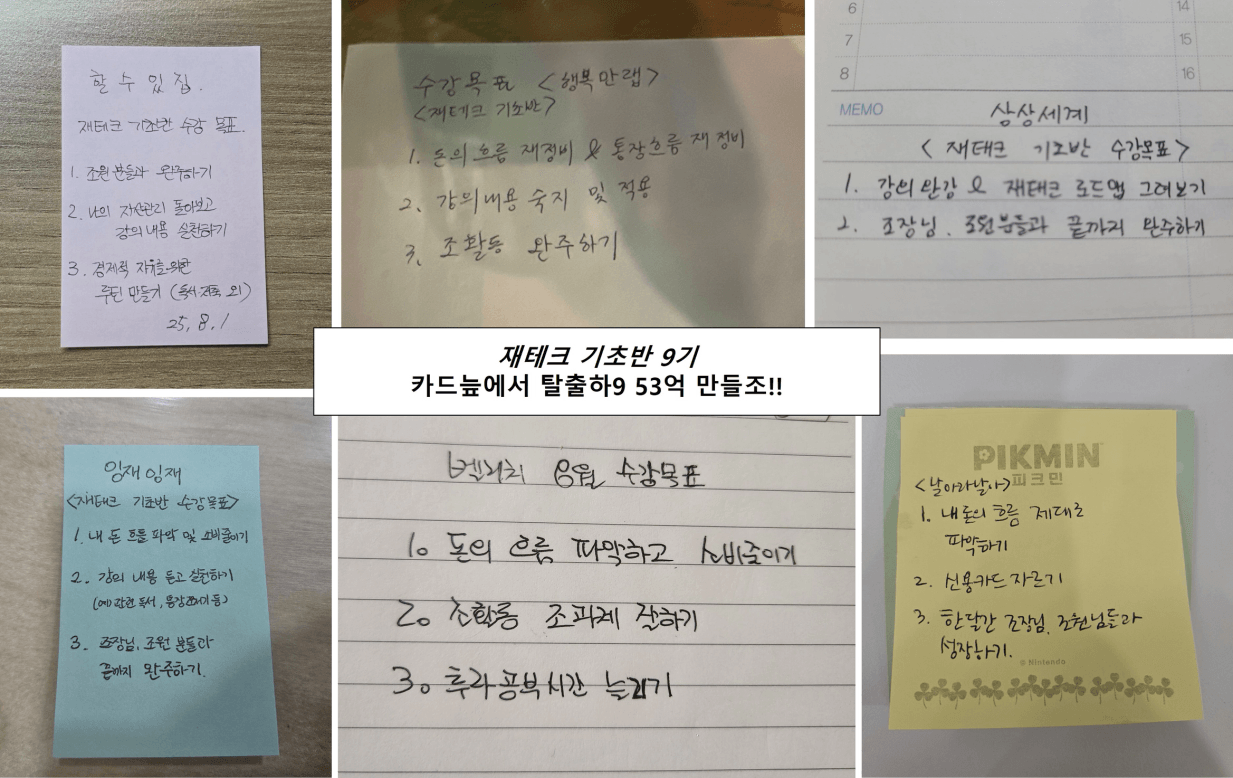 할 수 있집.
재테크 기초반 수강 목표.
1. 조원분들과 완주하기
2. 나의 자산관리 돌아보고
강의 내용 실천하기
3. 경제적 자유를 위한
루틴 만들기 (독서 외)
25. 8. 1
수강목표 <행복만랩>
<재테크 기초반>
1. 돈의 흐름 재정비 & 통장흐름 재정비
2. 강의내용 숙지 및 적용
3. 조활동 완주하기
6
7
8
14
15
16
MEMO
상상세계
< 재테크 기초반 수강목표 >
1. 강의 완강 & 재테크 로드맵 그려보기
2. 조장님, 조원분들과 끝까지 완주하기
재테크 기초반 9기
카드늪에서 탈출하9 53억 만들조!!
잉재잉재
<재테크 기초반 수강목표>
1. 내 돈 흐름 파악 및 소비줄이기
2. 강의 내용 듣고 실천하기
(예) 관련 독서, 등)
3. 조장님, 조원 분들과
끝까지 완주하기.
벨리치 8월 수강목표
1. 돈의 흐름 파악하고 소비줄이기
2. 조활동 조과제 잘하기
3. 공부시간 늘리기
PIKMIN™
피크민
<날아라날아>
1. 내 돈의 흐름 제대로
파악하기
2. 신용카드 자르기
3. 한달간 조장님, 조원님들과
성장하기.
© Nintendo